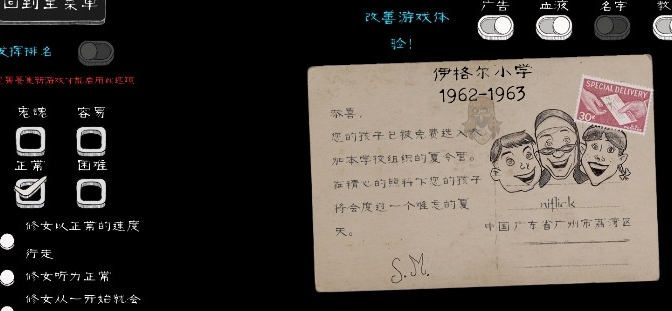 回到主菜单
发挥排名
鬼魂
容易
正常
困难
修女以正常的速度
行走
修女听力正常
修女从一开始就会
改善游戏体
验!
广告
血液
名字
伊格尔小学
1962-1963
恭喜,
您的孩子已被免费选入参
加本学校组织的夏令营。
在精心的照料下您的孩子
将会度过一个难忘的夏
天。
S.M.
SPECIAL DELIVERY
30¢
nitlick
中国广东省广州市荔湾区